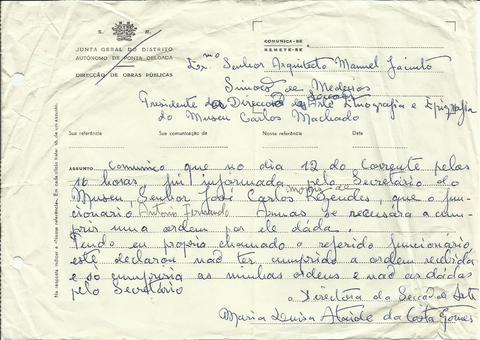 S. R.
JUNTA GERAL DO DISTRITO
AUTÓNOMO DE PONTA DELGADA
DIRECÇÃO DE OBRAS PÚBLICAS
COMUNICA-SE
REMETE-SE
Exmº Senhor Arquitecto Manuel Jacinto
Simões de Medeiros
Presidente da Direcção Arte Etnografia e Epigrafia
do Museu Carlos Machado
Sua referência Sua comunicação de Nossa referência Data
ASSUNTO Comunico que no dia 12 do corrente pelas
16 horas, fui informada pelo Secretário do
Museu, Senhor José Carlos Rezendes, que o fun-
cionário António Fernando Armas se recusára a cum-
prir uma ordem por ele dada.
Tendo eu própria chamado o referido funcionário,
este declarou não ter cumprido a ordem recebida
e só cumpriria as minhas ordens e não as dadas
pelo Secretário
a Directora da Secção de Arte
Maria Luisa Ataide da Costa Gomes